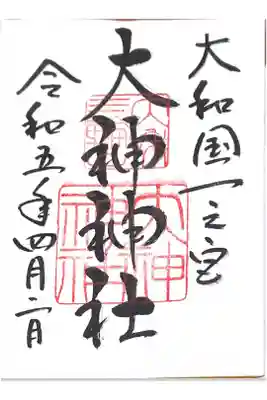 大和国一之宮
大神神社
大神
神社
令和五年四月二日